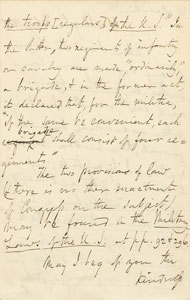 the troops [regulars] of the U. S. In
the latter, two regiments of infantry
or cavalry are made, "ordinarily,"
a brigade, & in the former act
it is declared that, for the militia,
"If the same be convenient, each
brigade shall consist of four re-
giments."
The two provisions of law
& there is no other enactment
of Congress on the subject,
may be found in the Military
Laws of the U. S. at pp. 92 & 296.
May I beg of you the
kindness